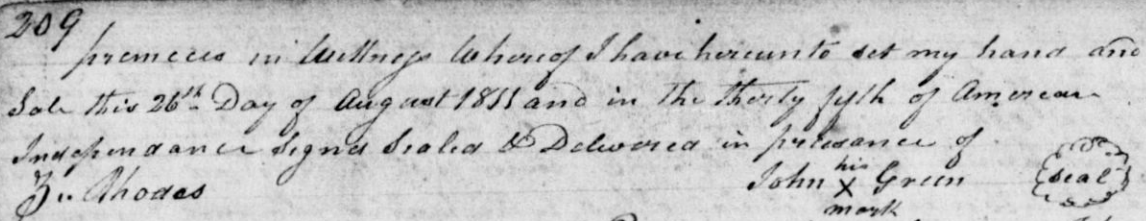 209
premeces in Wittness Whereof I have hereunto set my hand and
Sale this 26th Day of August 1811 and in the thirty fifth of American
Independance Signd Sealed & Delivered in presance of
Zu Rhodes John his X mark Green seal